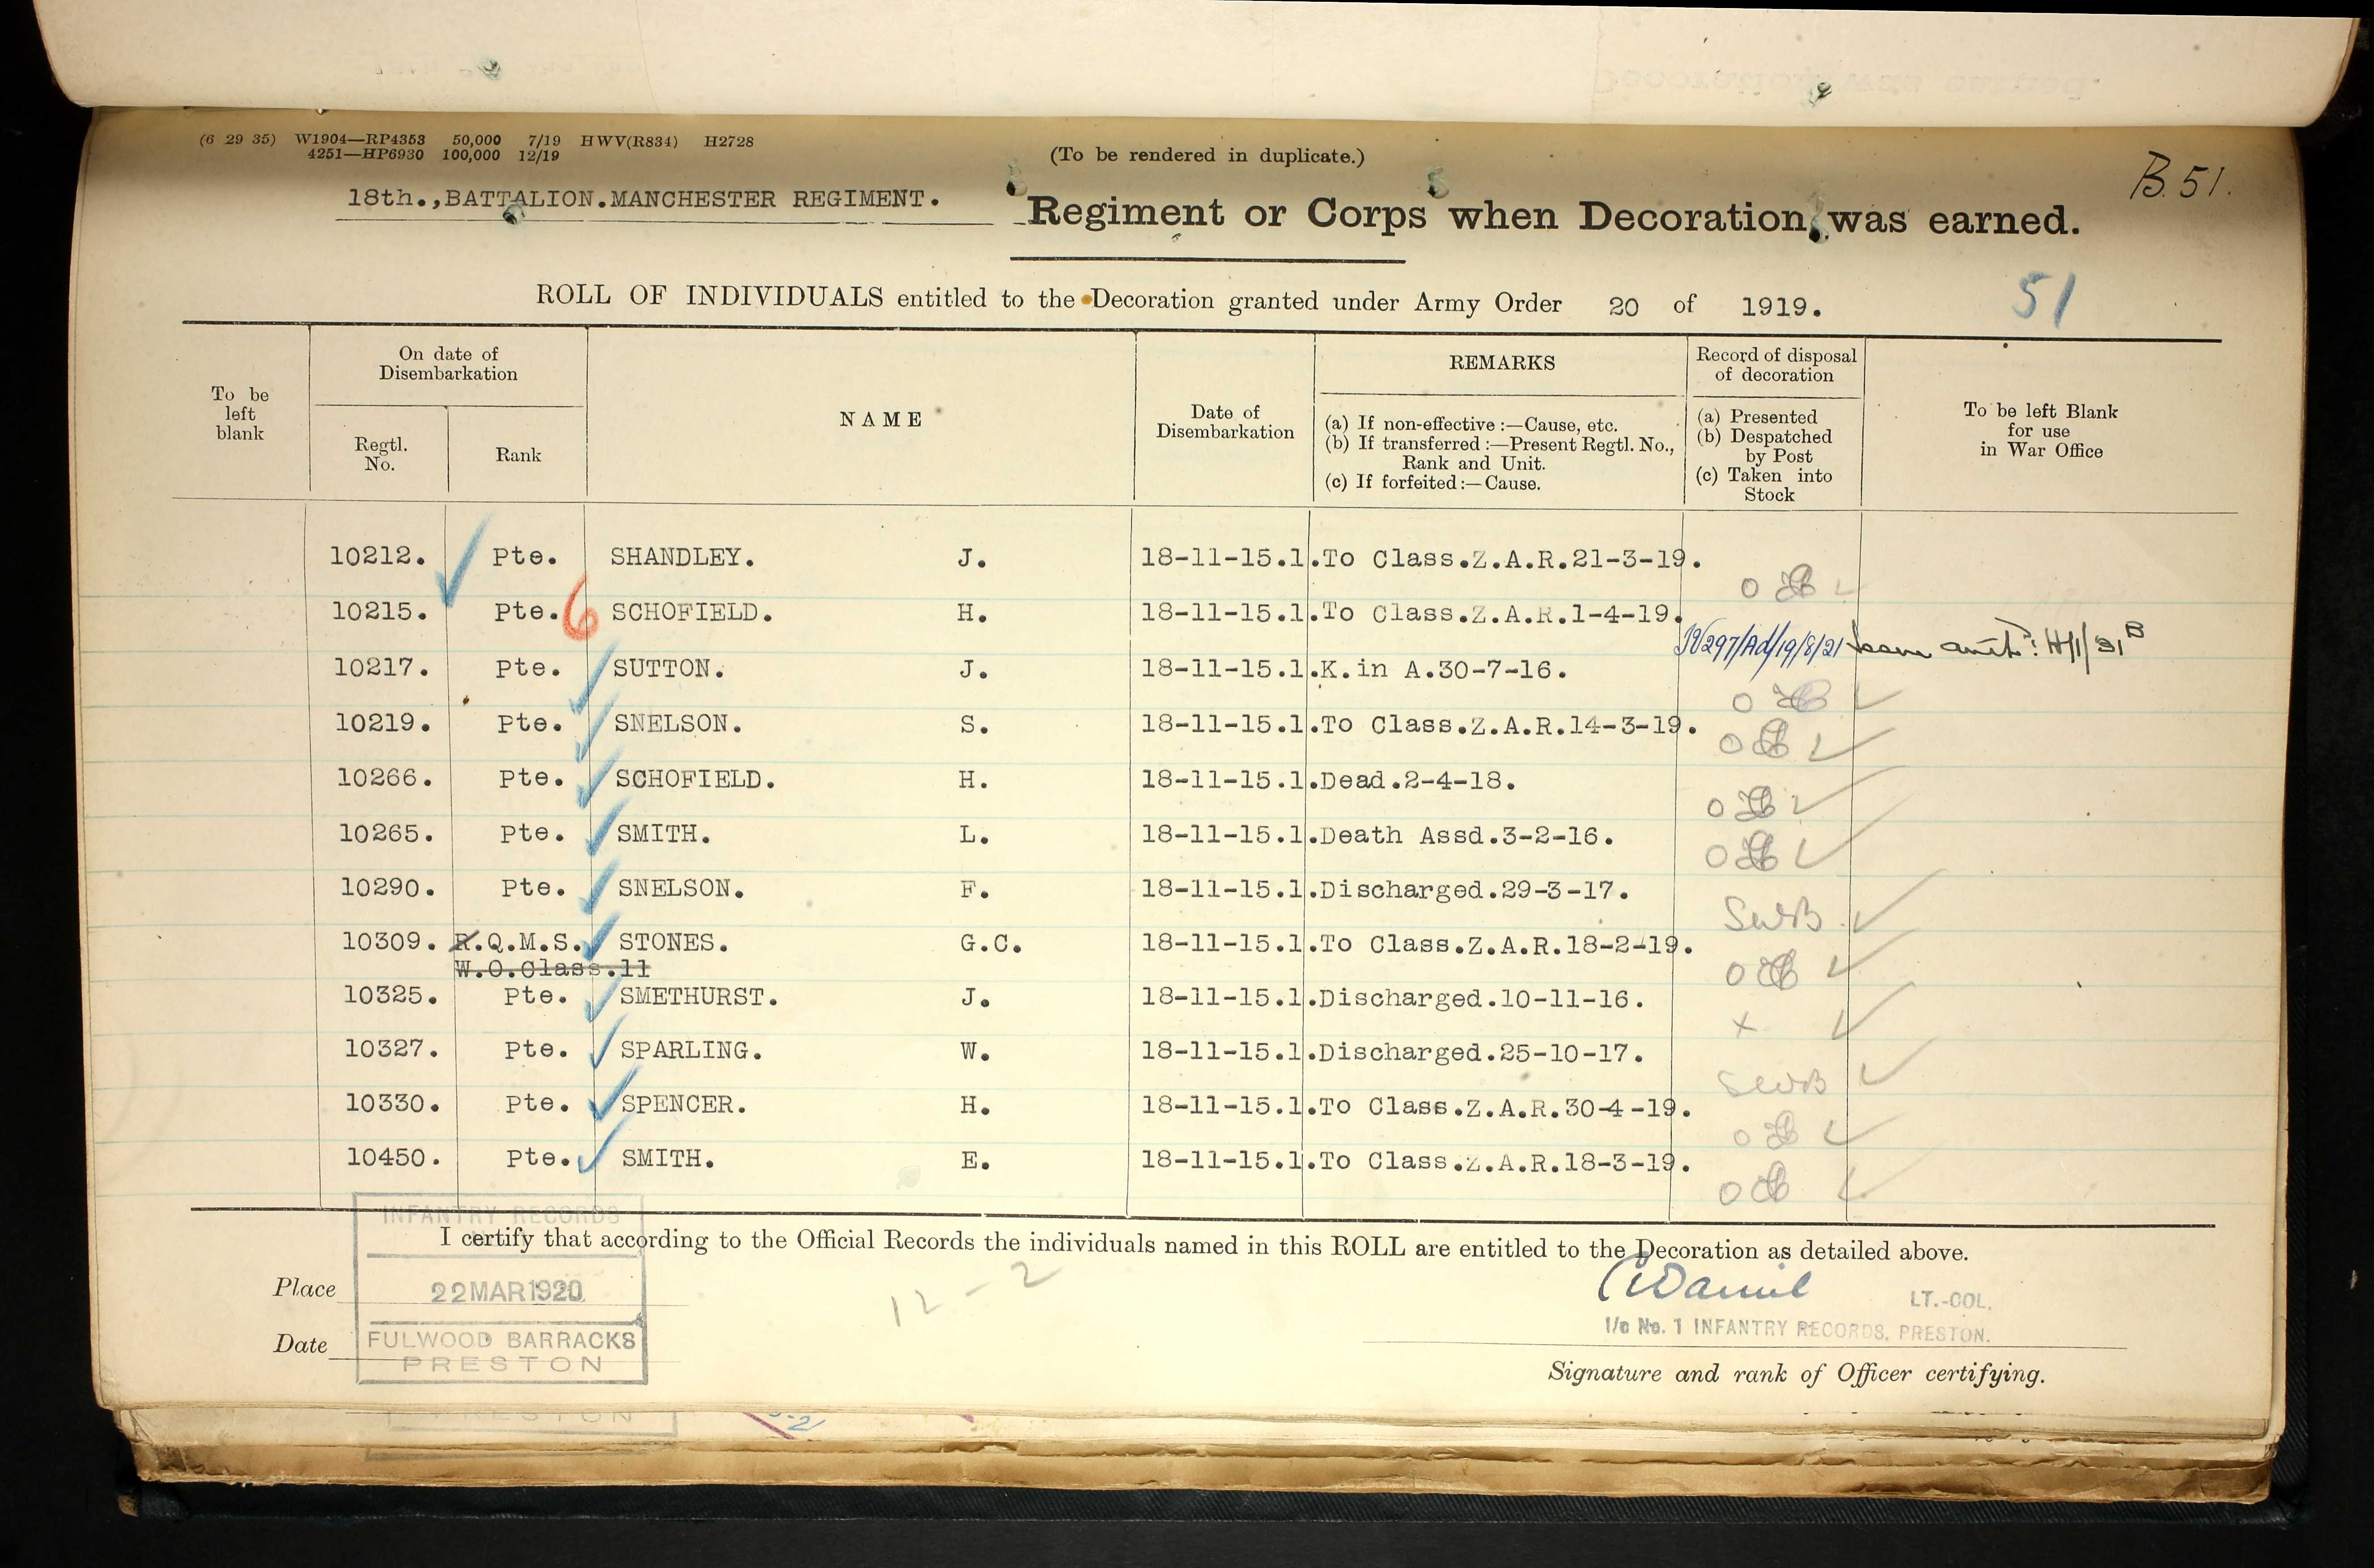 (6 29 35) W1904—RP4353 50,000 7/19 HWV(R834) H2728
4251—HP6930 100,000 12/19
(To be rendered in duplicate.)
B.51.
18th.,BATTALION.MANCHESTER REGIMENT. Regiment or Corps when Decoration was earned.
ROLL OF INDIVIDUALS entitled to the Decoration granted under Army Order 20 of 1919.
51
To be left blank
On date of Disembarkation
Regtl. No.
Rank
NAME
Date of Disembarkation
REMARKS
(a) If non-effective :—Cause, etc.
(b) If transferred :—Present Regtl. No., Rank and Unit.
(c) If forfeited :—Cause.
Record of disposal of decoration
(a) Presented
(b) Despatched by Post
(c) Taken into Stock
To be left Blank for use in War Office
10212. Pte. SHANDLEY. J. 18-11-15.1.To Class.Z.A.R.21-3-19.
10215. Pte. 6 SCHOFIELD. H. 18-11-15.1.To Class.Z.A.R.1-4-19.
10217. Pte. SUTTON. J. 18-11-15.1.K.in A.30-7-16.
10219. Pte. SNELSON. S. 18-11-15.1.To Class.Z.A.R.14-3-19.
10266. Pte. SCHOFIELD. H. 18-11-15.1.Dead.2-4-18.
10265. Pte. SMITH. L. 18-11-15.1.Death Assd.3-2-16.
10290. Pte. SNELSON. F. 18-11-15.1.Discharged.29-3-17.
SWB
10309. R.Q.M.S. STONES. G.C. 18-11-15.1.To Class.Z.A.R.18-2-19.
W.O.Class.11
10325. Pte. SMETHURST. J. 18-11-15.1.Discharged.10-11-16.
x
10327. Pte. SPARLING. W. 18-11-15.1.Discharged.25-10-17.
SWB
10330. Pte. SPENCER. H. 18-11-15.1.To Class.Z.A.R.30-4-19.
10450. Pte. SMITH. E. 18-11-15.1.To Class.Z.A.R.18-3-19.
INFANTRY RECORDS
I certify that according to the Official Records the individuals named in this ROLL are entitled to the Decoration as detailed above.
12-2
Place
22MAR1920
LT.-COL.
I/c No. 1 INFANTRY RECORDS, PRESTON.
Date
FULWOOD BARRACKS
PRESTON
Signature and rank of Officer certifying.
PRESTON